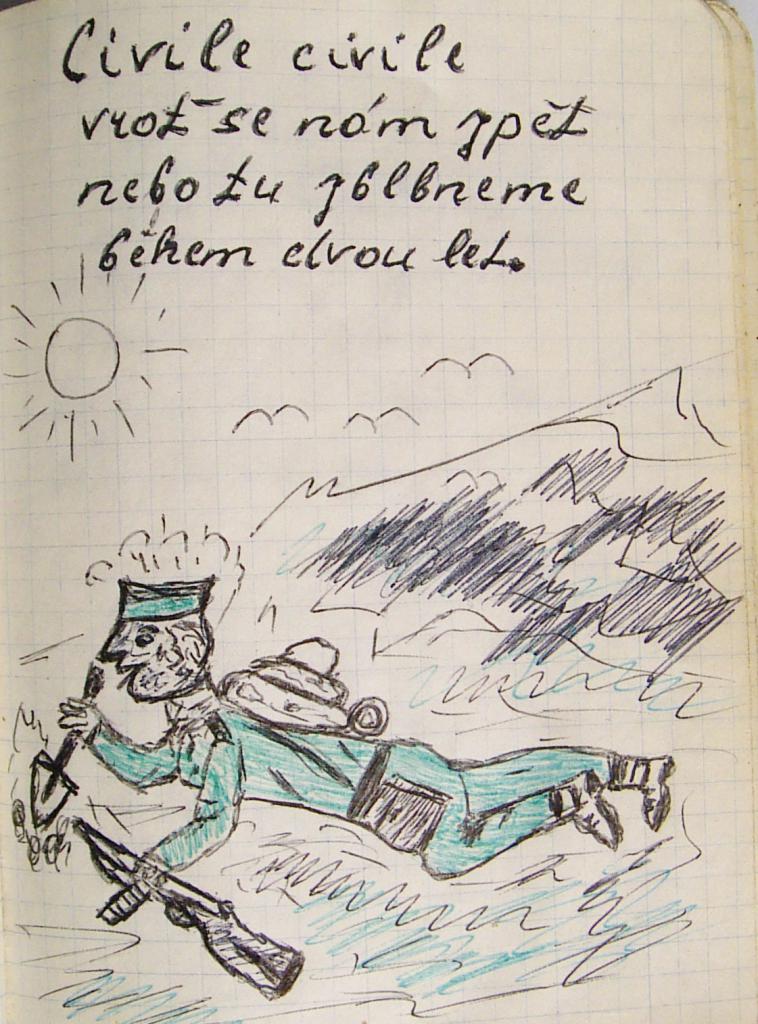 Civile civile
vrať se nám zpět
nebo tu zblbneme
během dvou let.